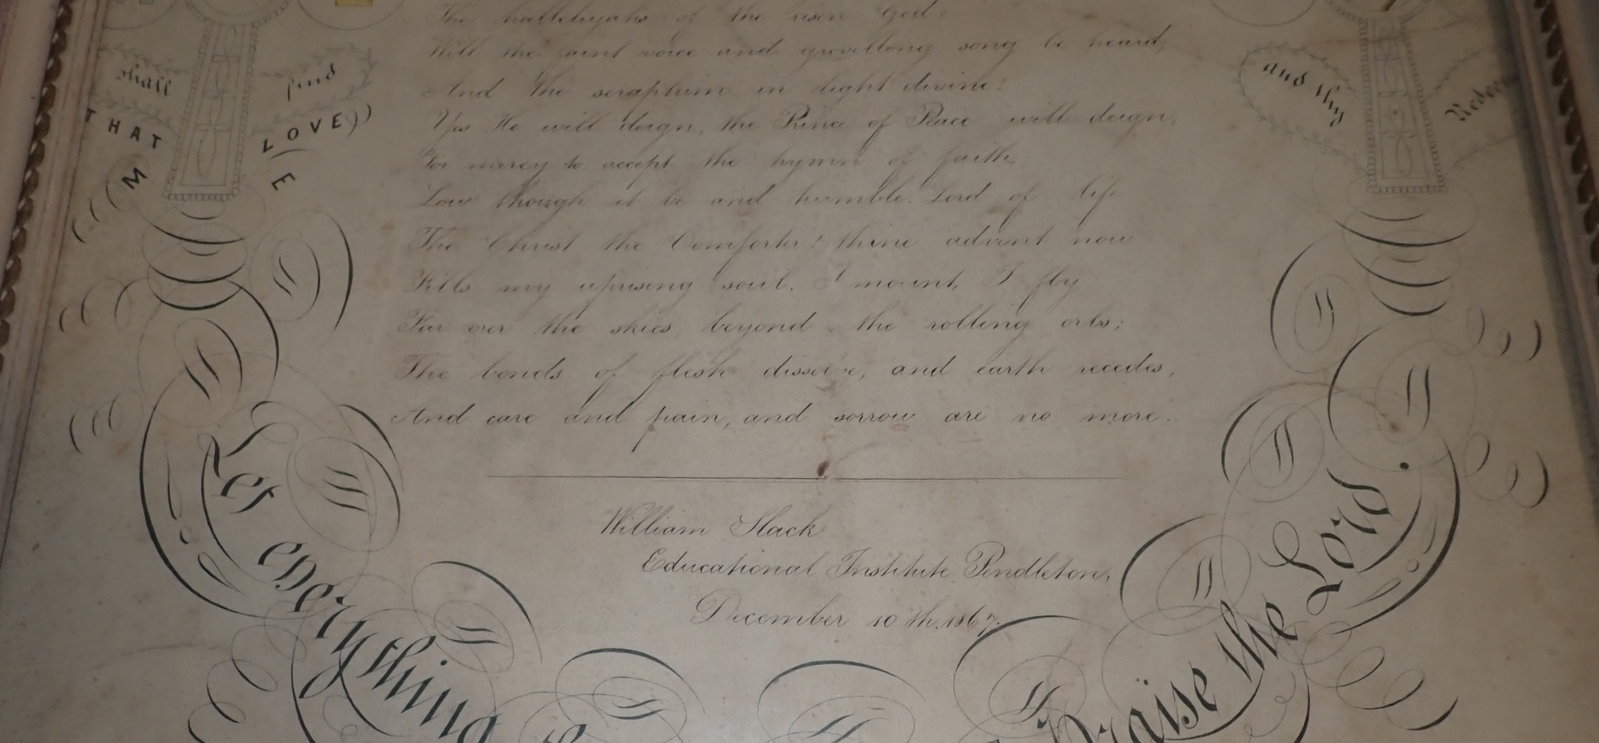 The hallelujahs of the risen God?
Will the faint voice and grovelling song be heard,
And the seraphim in light divine?
Yes He will deign, the Prince of Peace will deign,
For mercy to accept the hymn of faith
Low though it be and humble. Lord of life
The Christ the Comforter! thine advent now
Fills my uprising soul. I mount, I fly
Far over the skies, beyond the rolling orbs;
The bonds of flesh dissolve, and earth recedes,
And care and pain, and sorrow are no more.
William Slack
Educational Institute Pendleton,
December 10th 1867.
shall
find
THAT
LOVE
M
E
and thy
Let everything
Praise the Lord.